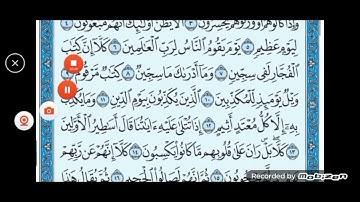 وَإِذَا كَالُوهُمْ أَو وَّزَنُوهُمْ يُخْسِرُونَ ٣ أَلَا يَظُنُّ أُولَٰئِكَ أَنَّهُم مَّبْعُوثُونَ ٤
لِيَوْمٍ عَظِيمٍ ٥ يَوْمَ يَقُومُ النَّاسُ لِرَبِّ الْعَالَمِينَ ٦ كَلَّا إِنَّ كِتَابَ
الْفُجَّارِ لَفِي سِجِّينٍ ٧ وَمَا أَدْرَاكَ مَا سِجِّينٌ ٨ كِتَابٌ مَّرْقُومٌ ٩
وَيْلٌ يَوْمَئِذٍ لِّلْمُكَذِّبِينَ ١٠ الَّذِينَ يُكَذِّبُونَ بِيَوْمِ الدِّينِ ١١ وَمَا يُكَذِّبُ
بِهِ إِلَّا كُلُّ مُعْتَدٍ أَثِيمٍ ١٢ إِذَا تُتْلَىٰ عَلَيْهِ آيَاتُنَا قَالَ أَسَاطِيرُ الْأَوَّلِينَ
١٣ كَلَّا بَلْ رَانَ عَلَىٰ قُلُوبِهِم مَّا كَانُوا يَكْسِبُونَ ١٤ كَلَّا إِنَّهُمْ عَن رَّبِّهِمْ
ثُمَّ إِنَّهُمْ لَصَالُو الْجَحِيمِ ١٦ ثُمَّ يُقَالُ هَٰذَا
Recorded by
Mobizen